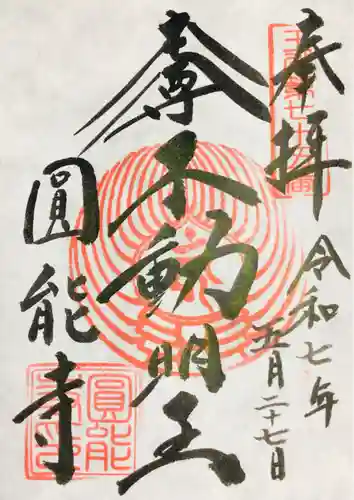 奉拝
令和七年
五月二十七日
尊
不動明王
圓能寺
圓能